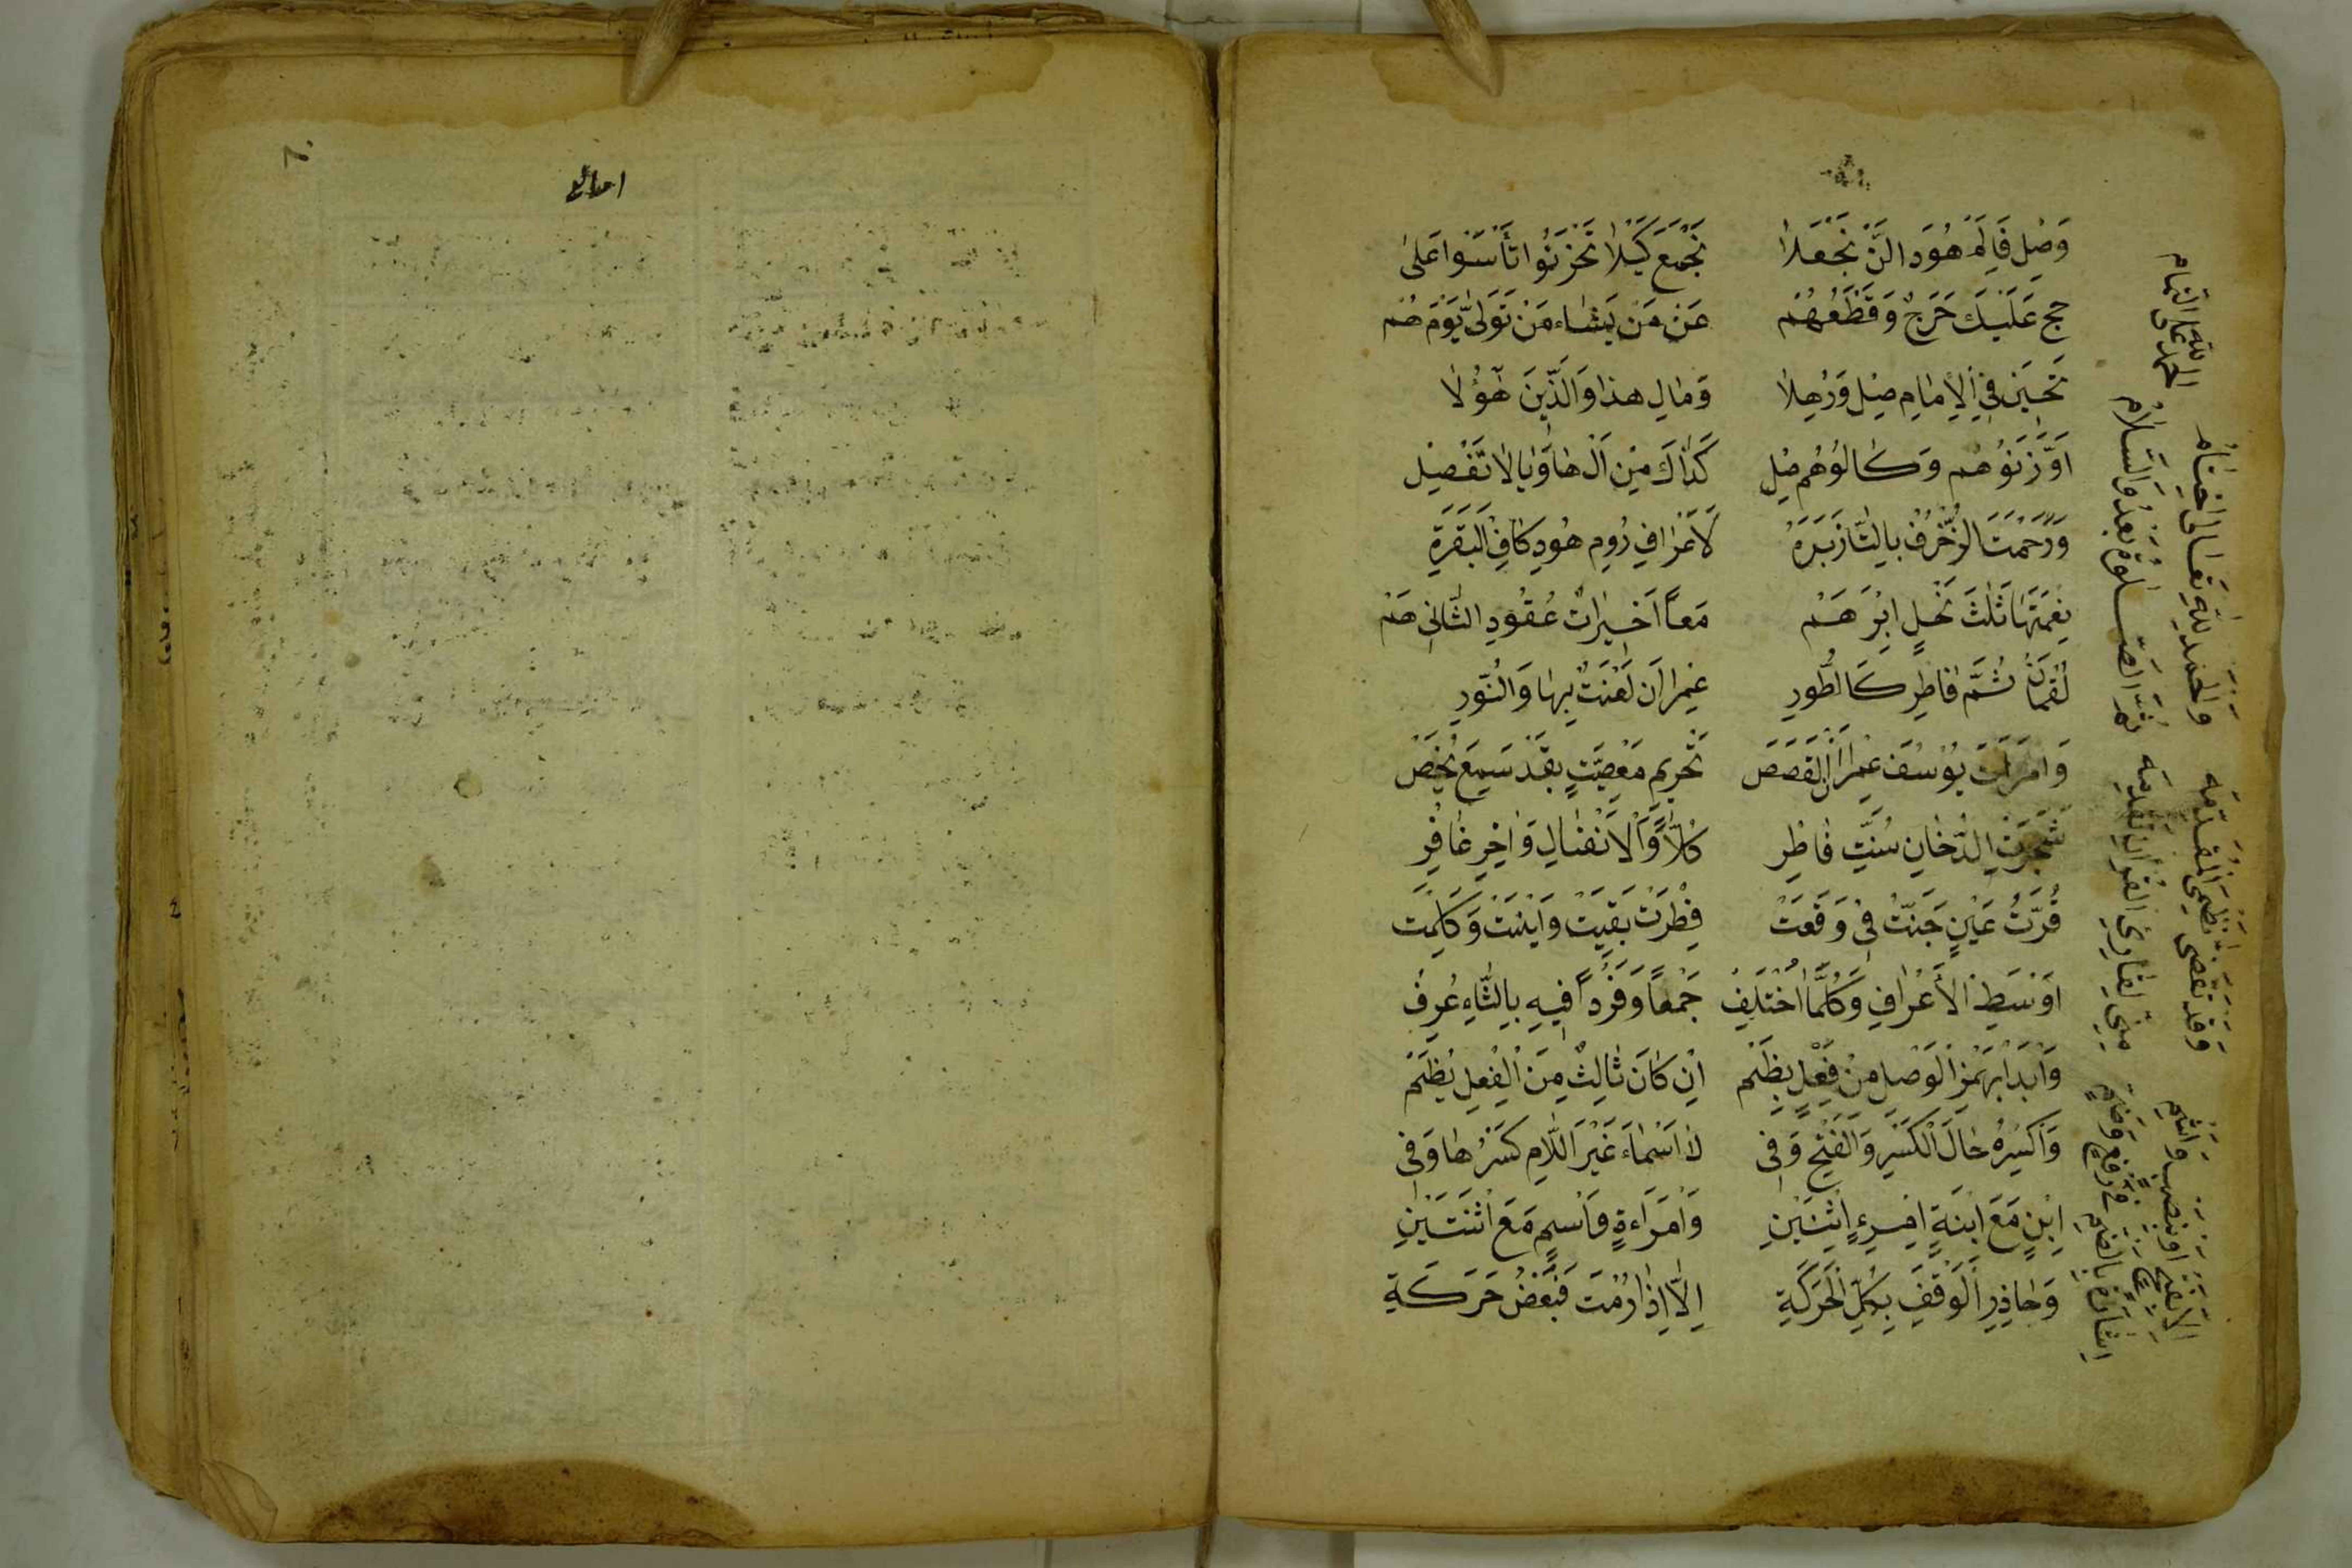 وَصِل فَاِلَّم هُودَ الَّن نَجْعَلَا نَجْمَعَ كَيْلَا تَحْزَنُوا تَأْسَوْا عَلٰى
حج عَلَيْكَ حَرَجٌ وَقَطْعُهُمْ عَنْ مَنْ يَشَاء مَنْ تَوَلّٰى يَوْمَ هُمْ
تَحِيْنَ فِي الْاِمَامِ صِل وَوُهِلَا وَمَالِ هذَا وَالَّذِينَ هٰؤُلَا
اَوْ وَزَنُوهُم وَكَالُوهُم صِل كَذَاكَ مِنْ اَلْ هَا وَيَا لَا تَفْصِل
وَرَحْمَتَ الزُّخْرُف بِالتَّا زَبَرَه لَاعْرَافِ رُومِ هُودِ كَافِ الْبَقَرَةِ
نِعْمَتُهَا ثَلٰثَ نَحْلٍ اِبْرَهَمْ مَعًا اَخِيرَاتٌ عُقُودِ الثَّانِ هَمْ
لُقْمَانُ ثُمَّ فَاطِر كَالطُّورِ عِمْرَانَ لَعْنَتٌ بِهَا وَالنُّورِ
وَامْرَاَتٌ يُوسُفَ عِمْرَانَ الْقَصَصْ تَحْرِيم مَعْصِيَتٍ بِقَدْ سَمِعَ يُخَصْ
شَجَرَتَ الدُّخَانِ سُنَّتِ فَاطِرِ كُلًّا وَالْاَنْفَالِ وَاٰخِرِ غَافِر
قُرَّتُ عَيْنٍ جَنَّتٌ فِي وَقَعَتْ فِطْرَتْ بَقِيَّتْ وَابْنَتْ وَكَلِمَتْ
اَوْسَطَ الْاَعْرَافِ وَكُلَّمَا اخْتُلِفْ جَمْعًا وَفَرْدًا فِيهِ بِالتَّاءِ عُرِفْ
وَابْدَا بِهَمْزِ الْوَصْلِ مِنْ فِعْلٍ بِضَمْ اِنْ كَانَ ثَالِثٌ مِنَ الْفِعْلِ يُضَمْ
وَاكْسِرْهُ حَالَ الْكَسْرِ وَالْفَتْحِ وَفِي لَاسْمَاءَ غَيْرَ اللَّامِ كَسْرُهَا وَفِي
اِبْنٍ مَعَ ابْنَةٍ امْرِءٍ اثْنَيْنِ وَامْرَاَةٍ وَاسْمٍ مَعَ اثْنَتَيْنِ
وَحَاذِرِ الْوَقْفَ بِكُلِّ الْحَرَكَةِ اِلَّا اِذَا رُمْتَ فَبَعْضُ حَرَكَةِ
اِلَّا بِفَتْحٍ اَوْ بِنَصْبٍ وَاَشِمْ اِشَارَةً بِالضَّمِ فِي رَفْعٍ وَضَمٍّ
وَقَدْ تَقَضَّى نَظْمِيَ الْمُقَدِّمَه مِنِّي لِقَارِئِ الْقُرْاٰنِ تَقْدِمَه
وَالْحَمْدُ لِلّٰهِ تَعَالٰى خِتَامْ ثُمَّ الصَّلٰوةُ بَعْدُ وَالسَّلَامْ
الحمد لله على التمام